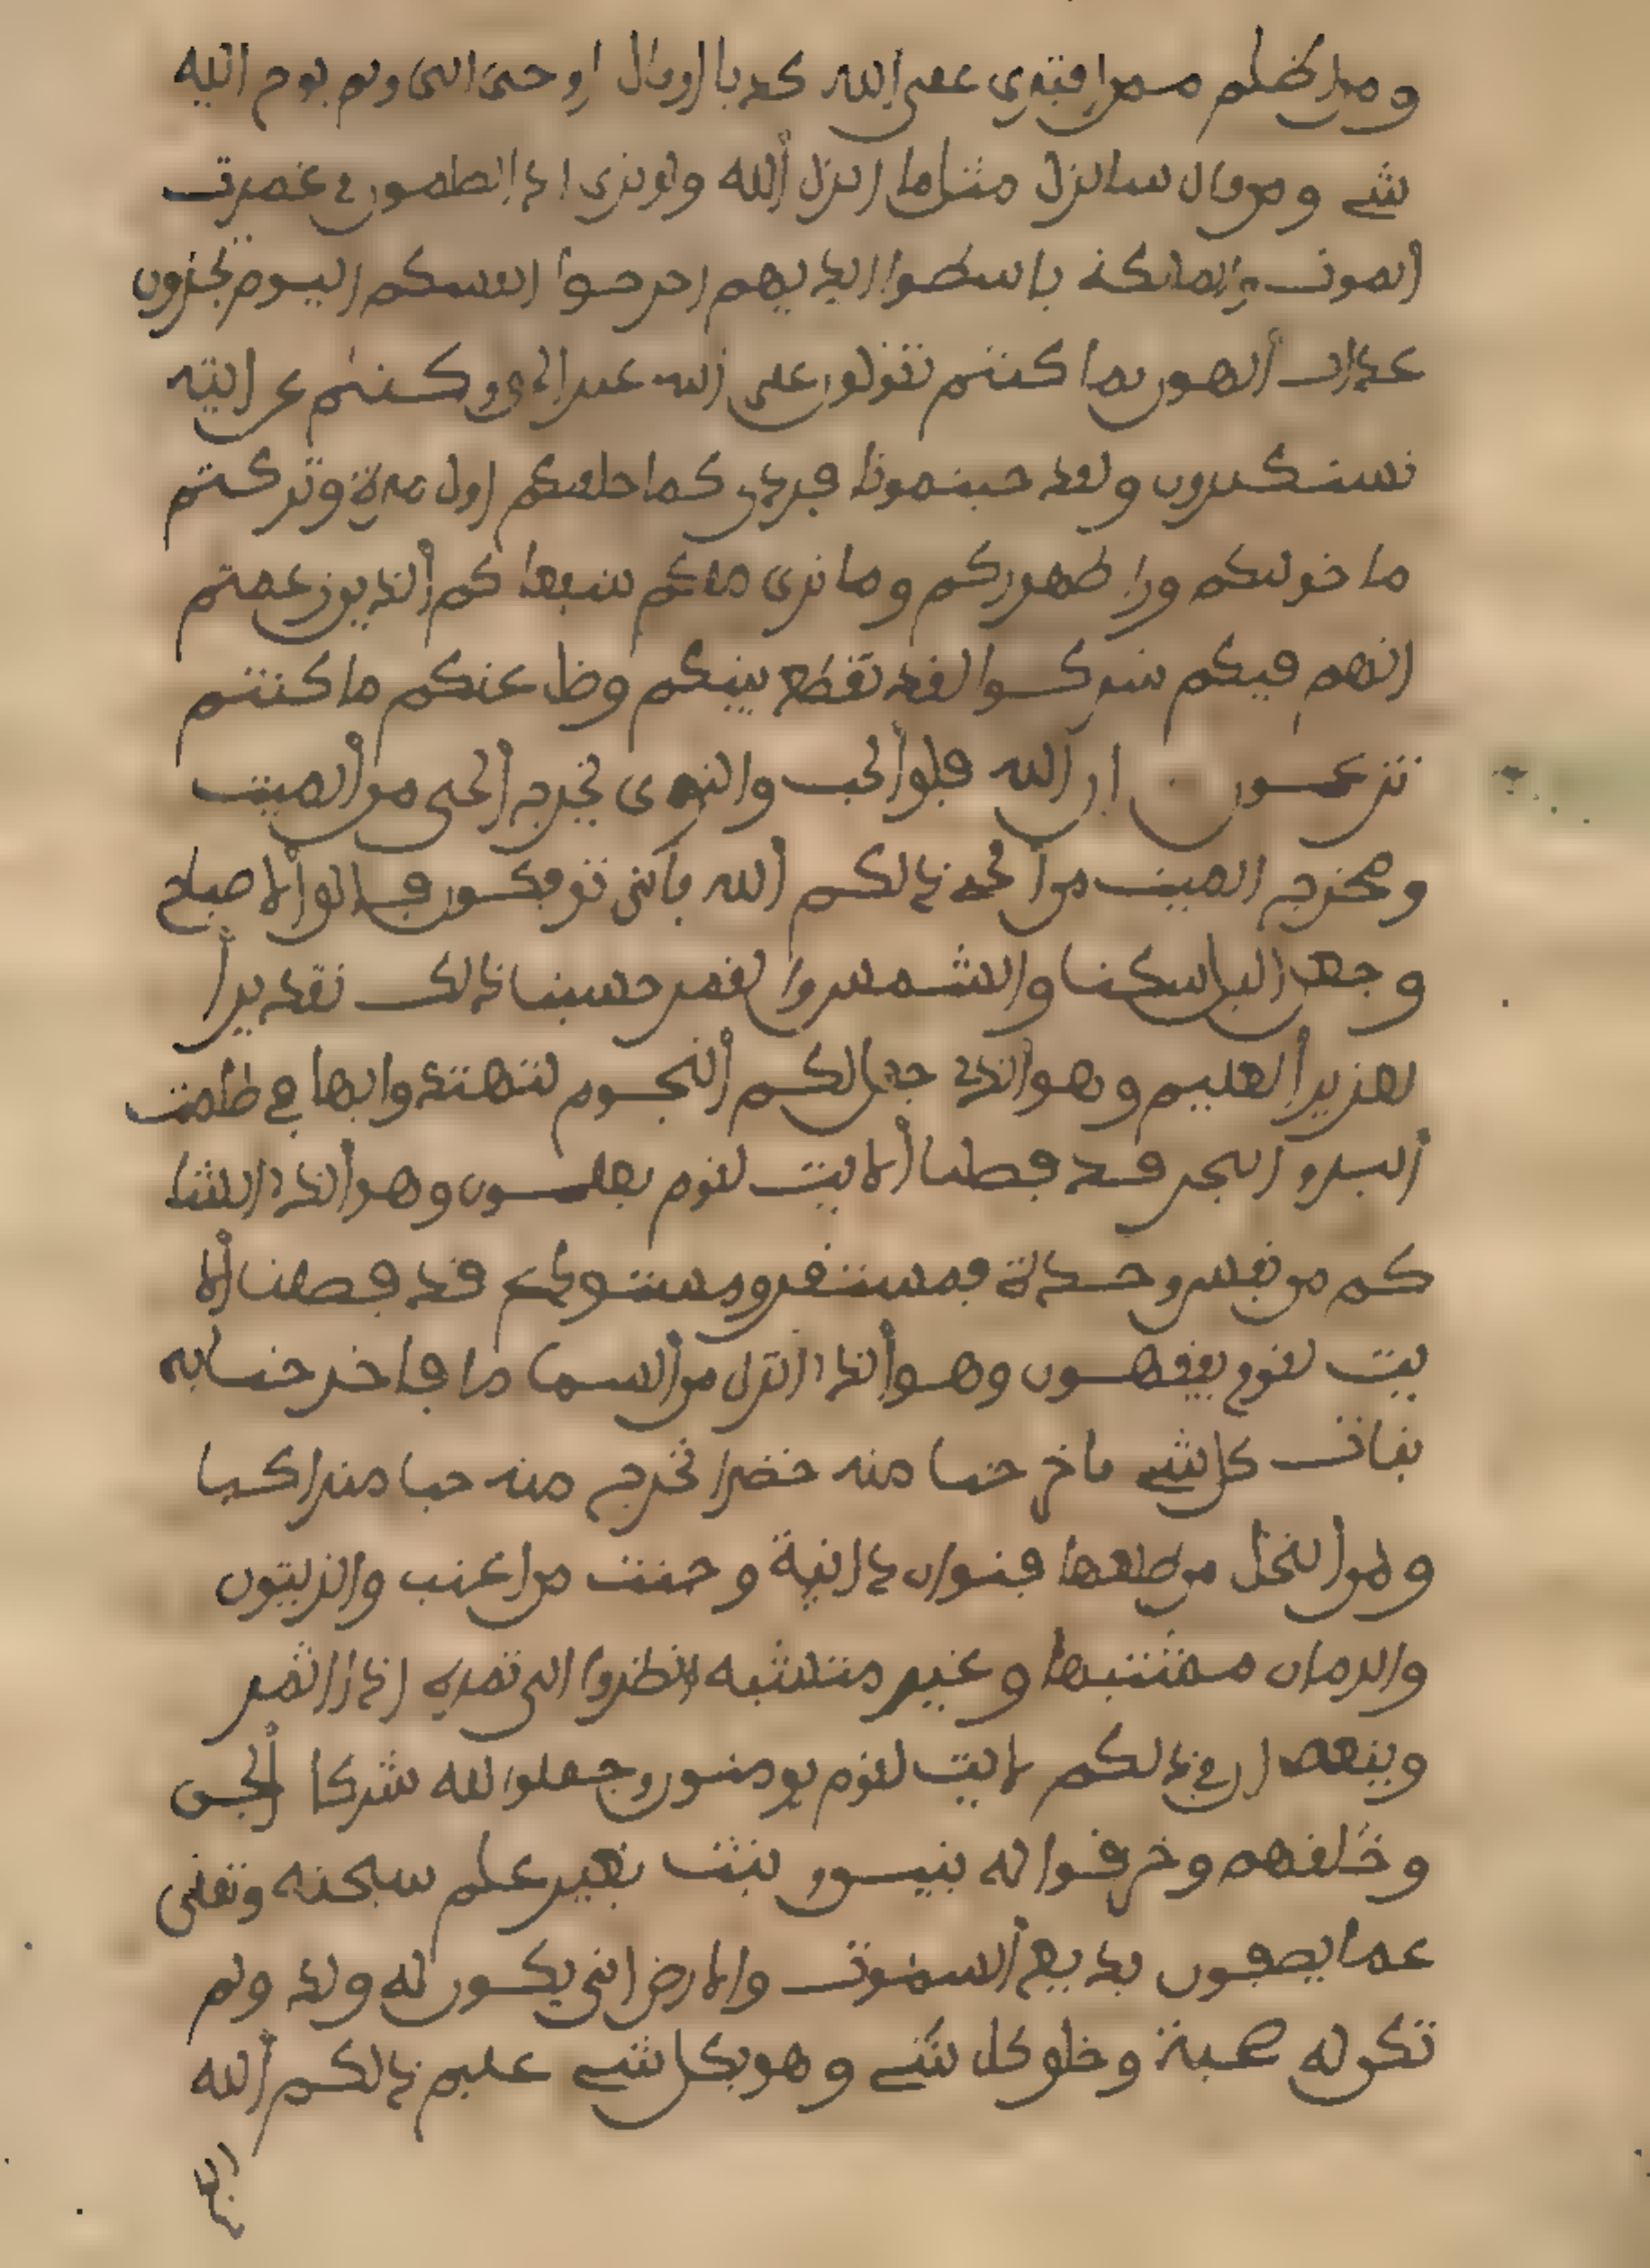 ومن اظلم ممن افترى على الله كذبا او قال اوحى الى ولم يوح اليه
شے ومن قال سانزل مثل ما انزل الله ولو ترى اذ الظلمون في غمرت
الموت والملئكة باسطوا ايديهم اخرجوا انفسكم اليوم تجزون
عذاب الهون بما كنتم تقولون على الله غير الحق وكنتم عن ايته
تستكبرون ولقد جيتمونا فردى كما خلقنكم اول مرة وتركتم
ما خولنكم ورا ظهوركم وما نرى معكم شفعا كم الذين زعمتم
انهم فيكم شركوا لقد تقطع بينكم وضل عنكم ما كنتم
تزعمون ان الله فلق الحب والنوى يخرج الحى من الميت
ومخرج الميت من الحى ذالكم الله فانى توفكون فالق الاصباح
وجعل اليل سكنا والشمس والقمر حسبنا ذالك تقدير ا
لعزيز العليم وهو الذى جعل لكم النجوم لتهتدوا بها في ظلمت
البر والبحر قد فصلنا الايت لقوم يعلمون وهو الذى انشا
كم من نفس وحدة فمستقر ومستودع قد فصلنا الا
يت لقوم يفقهون وهو الذى انزل من السما ما فاخرجنا به
نبات كل شے فاخرجنا منه خضرا نخرج منه حبا متراكبا
ومن النخل من طلعها قنوان دانية وجنت من اعنب والزيتون
والرمان مشتبها وغير متشبه انظروا الى ثمره اذا اثمر
وينعه ان في ذالكم لايت لقوم يومنون وجعلوا لله شركا الجن
وخلقهم وخرقوا له بنين وبنت بغير علم سبحنه وتعلى
عما يصفون بديع السموت والارض انى يكون له ولد ولم
تكن له صحبة وخلق كل شے وهو بكل شے عليم ذالكم الله